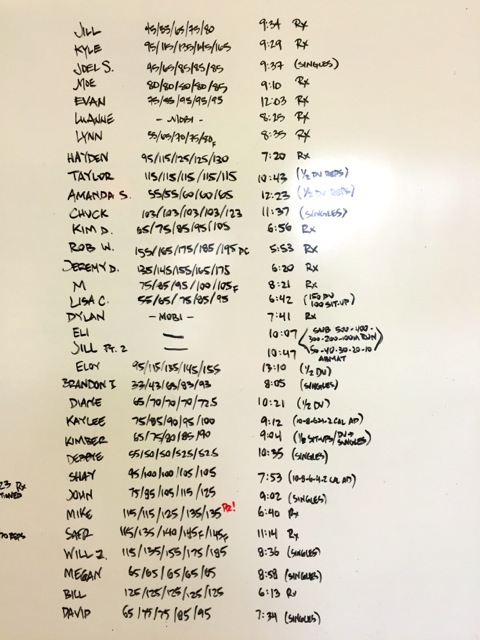 JILL 45/55/65/75/80 9:34 Rx
KYLE 95/115/135/145/165 9:29 Rx
JOEL S. 45/65/85/85/85 9:37 (SINGLES)
MOE 80/80/80/80/85 9:10 Rx
EVAN 75/95/95/95/95 12:03 Rx
LUANNE - MOBI - 8:25 Rx
LYNN 55/65/70/75/80F 8:35 Rx
HAYDEN 95/115/125/125/130 7:20 Rx
TAYLOR 115/115/115/115/115 10:43 (1/2 DU REPS)
AMANDA S. 55/55/60/60/65 12:23 (1/2 DU REPS)
CHUCK 103/103/103/103/123 11:37 (SINGLES)
KIM D. 65/75/85/95/105 6:56 Rx
ROB W. 155/165/175/185/195 DC 5:53 Rx
JEREMY D. 135/145/155/165/175 6:20 Rx
M 75/85/95/100/105F 8:21 Rx
LISA C. 55/65/75/85/95 6:42 (150 DU 100 SIT-UP)
DYLAN - MOBI - 7:41 Rx
ELI — 10:07 SUB 500-400-300-200-100M RUN
JILL PT. 2 — 10:47 50-40-30-20-10 ABMAT
ELOY 95/115/135/145/155 13:10 (1/2 DU)
BRANDON T. 33/43/63/83/93 8:05 (SINGLES)
DIANE 65/70/70/70/72.5 10:21 (1/2 DU)
KAYLEE 75/85/90/95/100 9:12 (10-8-6-4-2 CAL AD)
KIMBER 65/75/80/85/90 9:04 SIT-UPS/DU+SINGLES)
DEBBYE 55/50/50/52.5/52.5 10:35 (SINGLES)
SHAY 95/100/100/105/105 7:53 (10-8-6-4-2 CAL AD)
JOHN 75/95/105/115/125 9:02 (SINGLES)
MIKE 115/115/125/135/135 PR! 6:40 Rx
115/135/140/145F/145F 11:14 Rx
WILL Z. 115/135/155/175/185 8:36 (SINGLES)
MEGAN 65/65/65/65/65 8:58 (SINGLES)
BILL 125/125/125/125/125 6:13 Rx
DAVID 65/75/75/85/95 7:34 (SINGLES)
23 Rx